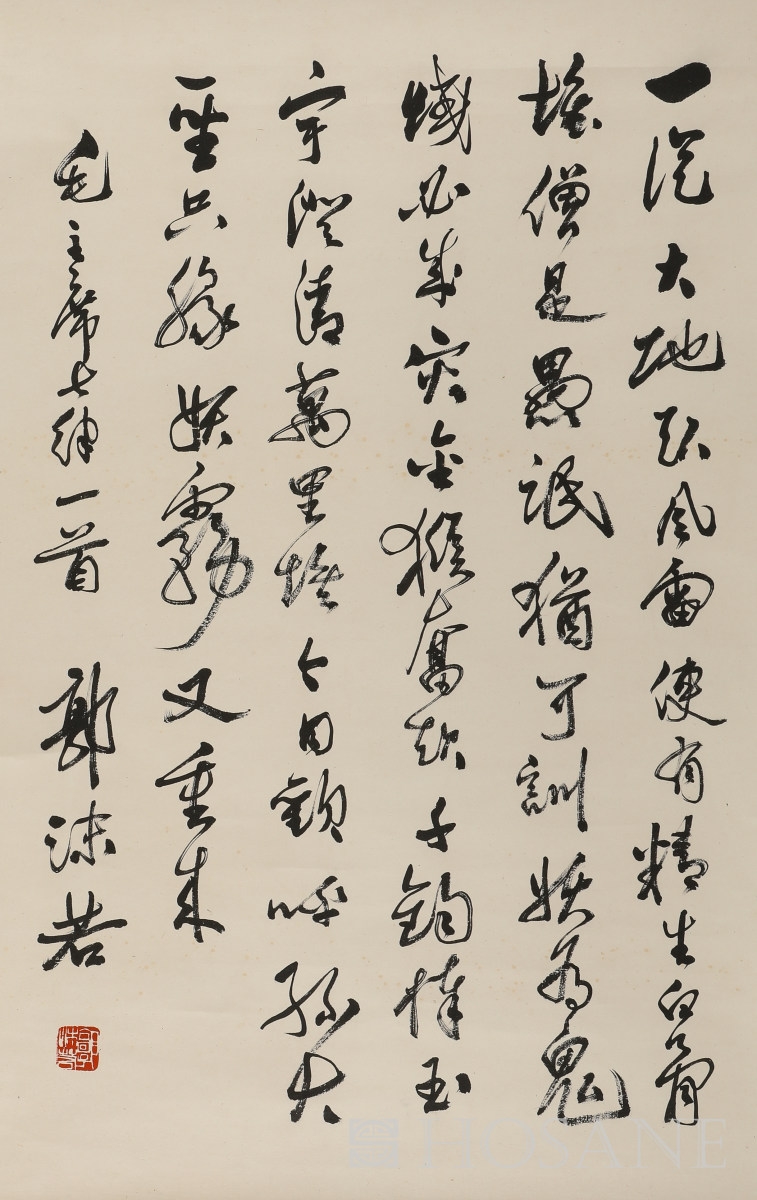 一從大地起風雷便有精生白骨
堆僧是愚氓猶可訓妖為鬼
蜮必成灾金猴奮起千鈞棒玉
宇澄清萬里埃今日歡呼孫大
聖只緣妖霧又重来
毛主席七律一首 郭沫若
郭沫若
HOSANE